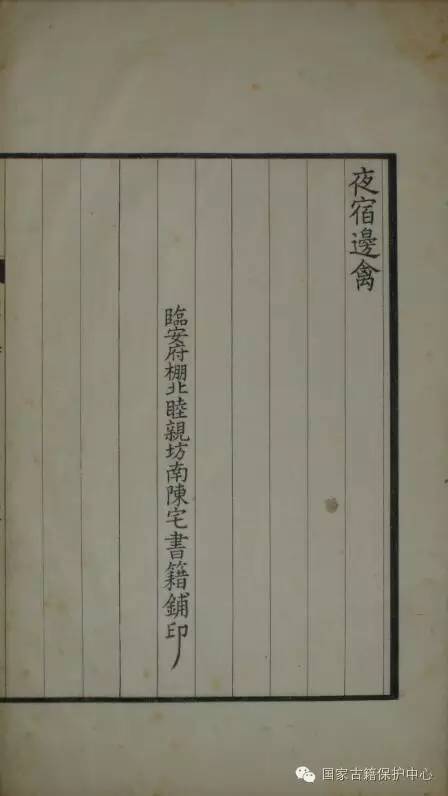 夜宿邊禽
臨安府棚北睦親坊南陳宅書籍鋪印
国家古籍保护中心